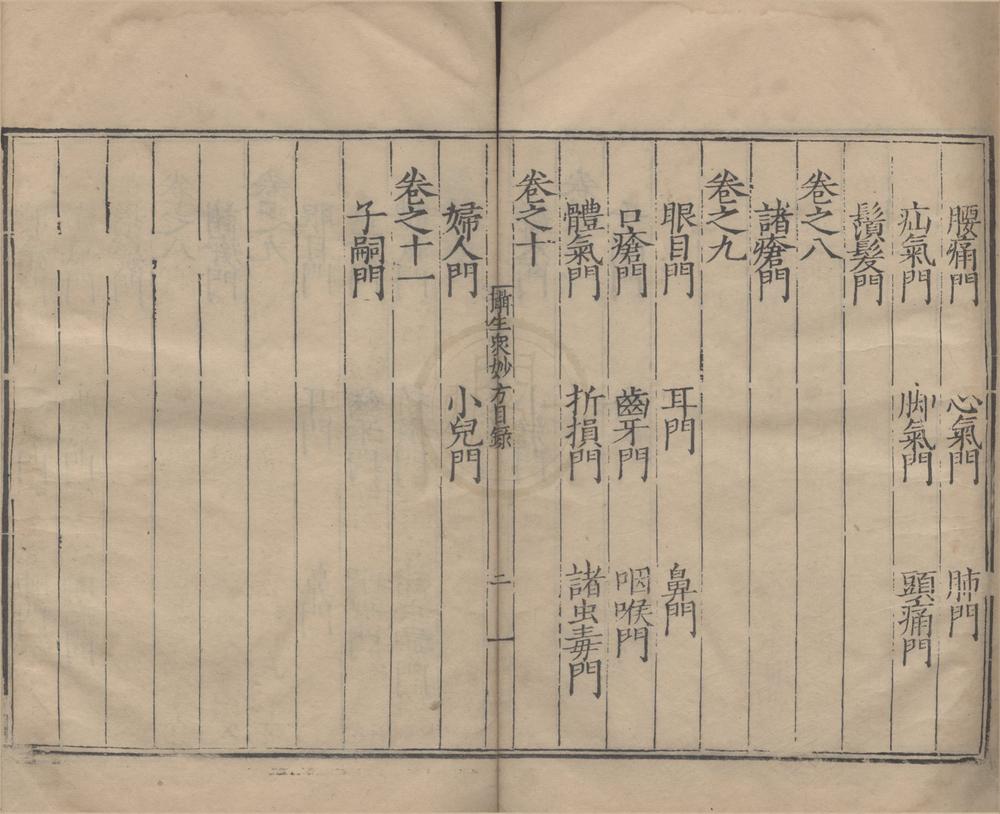 腰痛門　心氣門　肺門
疝氣門　脚氣門　頭痛門
鬚髮門
卷之八
諸瘡門
卷之九
眼目門　耳門　鼻門
口瘡門　齒牙門　咽喉門
體氣門　折損門　諸虫毒門
卷之十
攝生衆妙方目錄　二
婦人門　小兒門
卷之十一
子嗣門